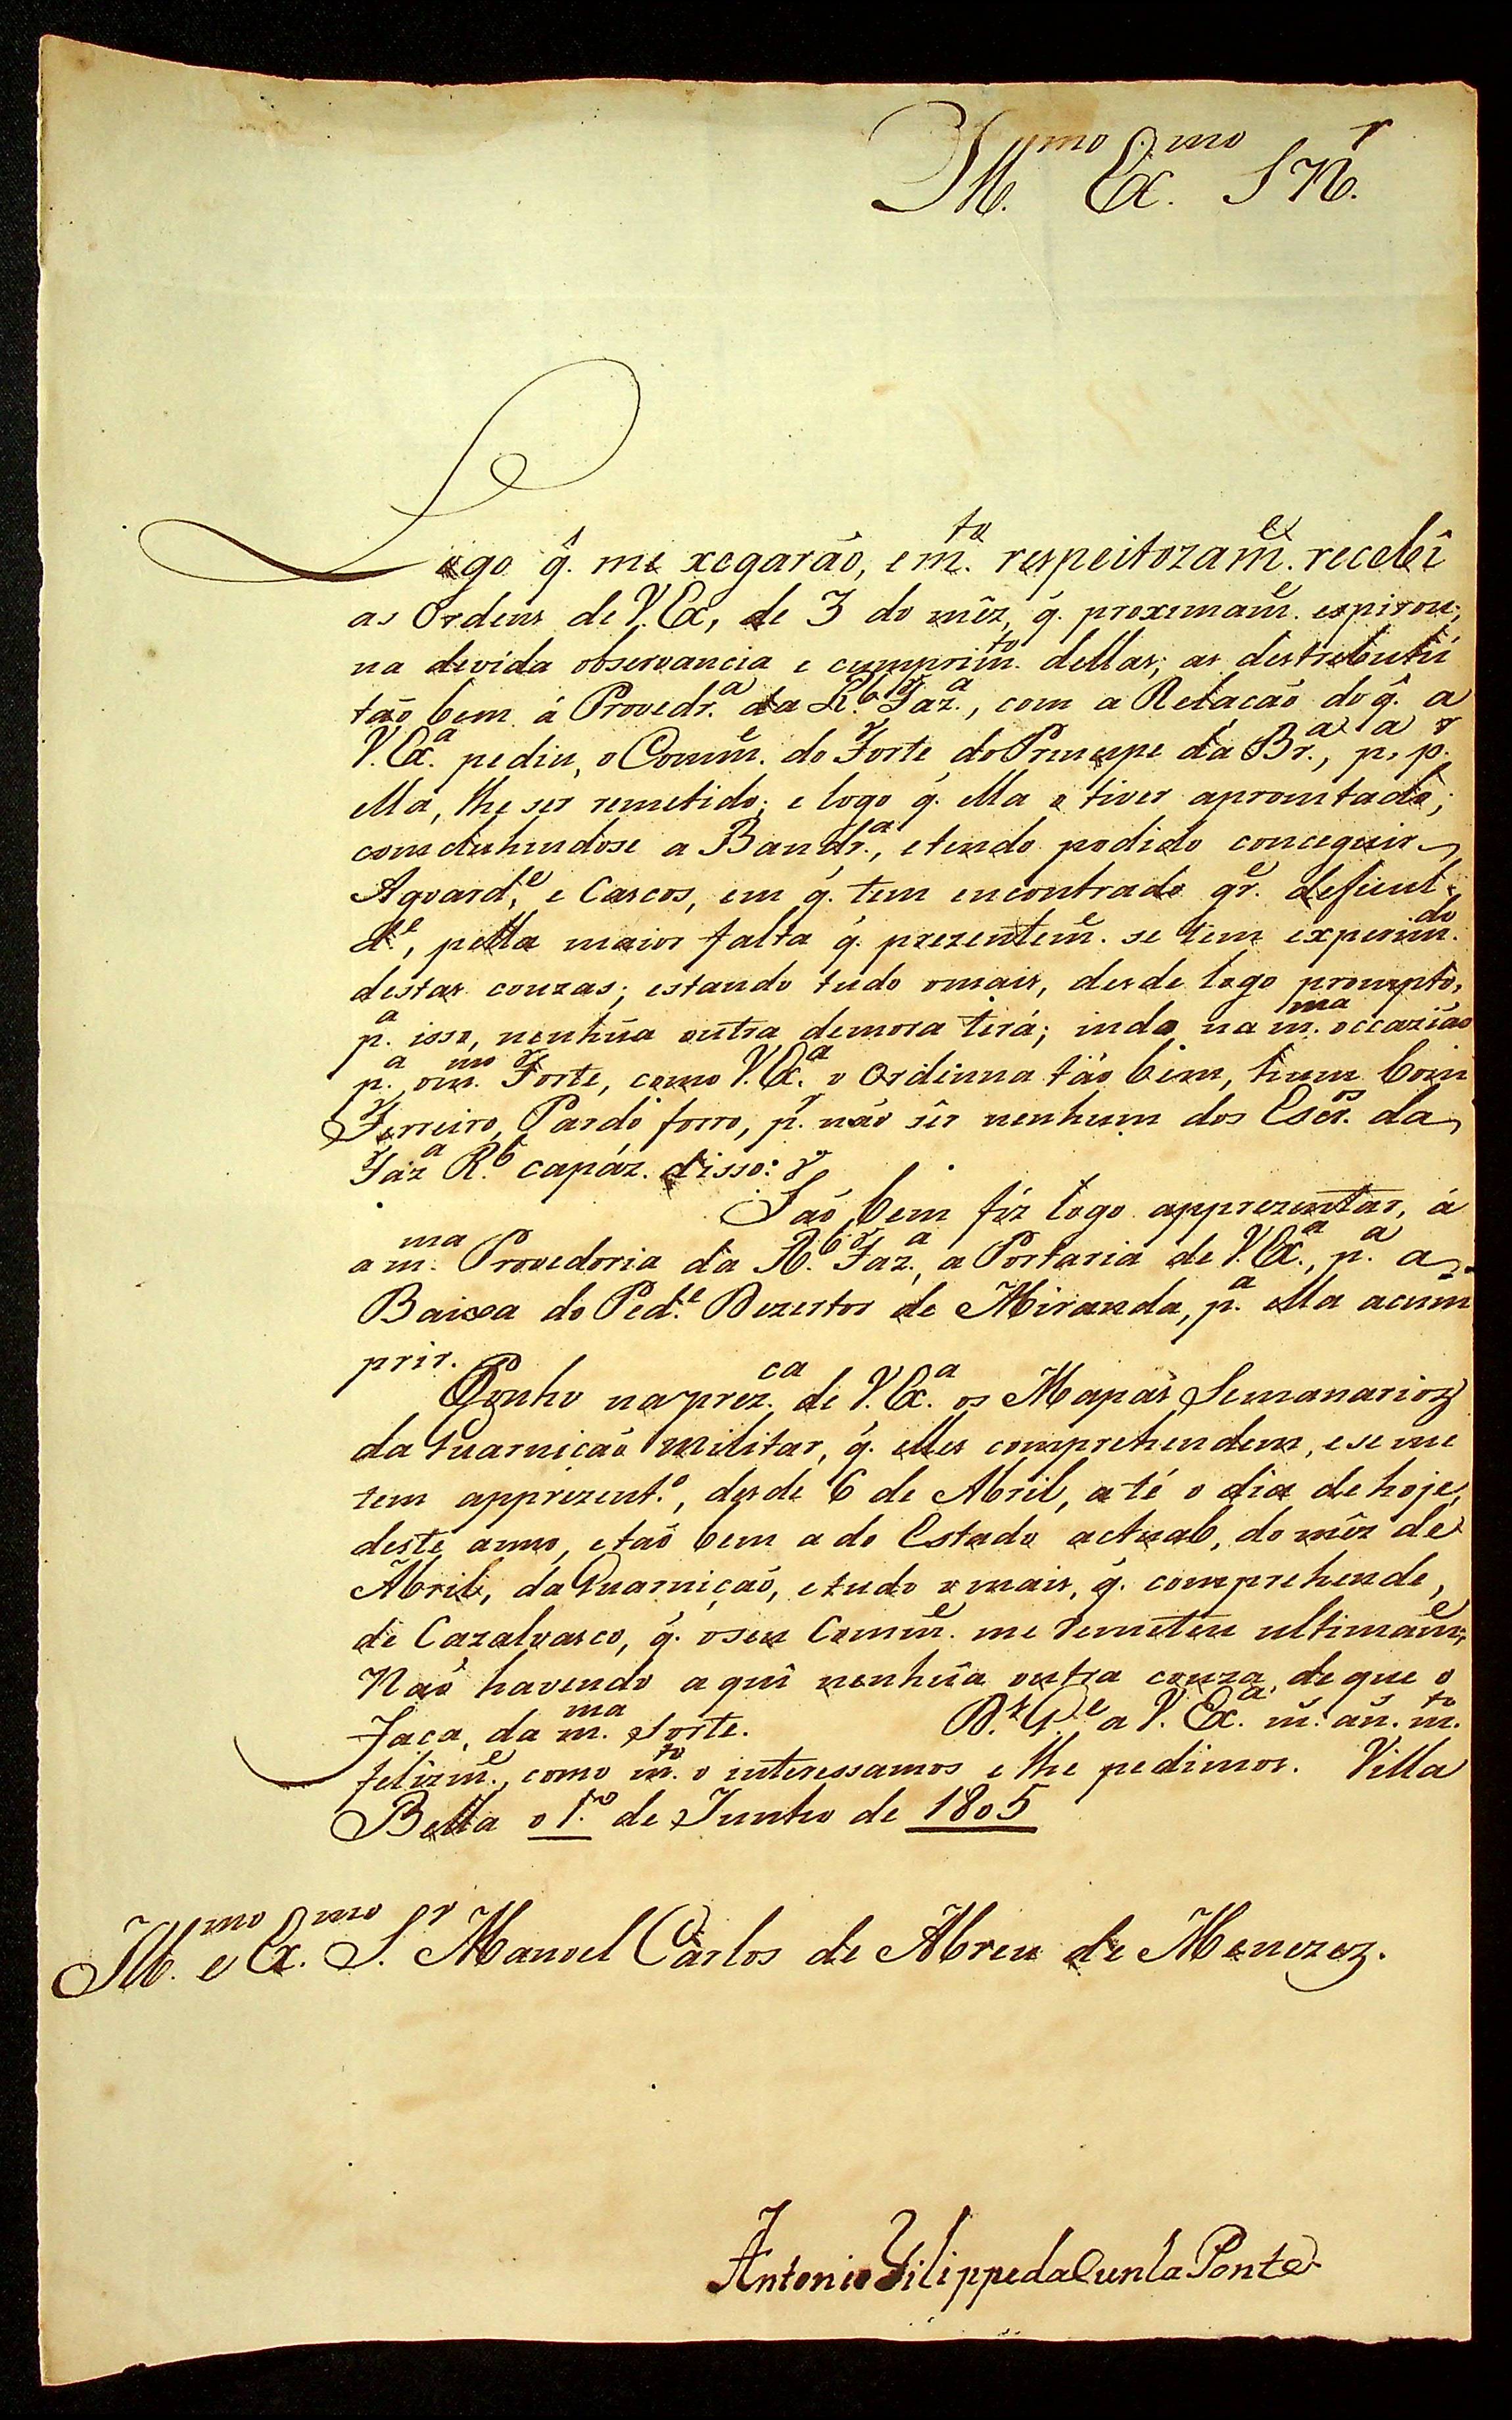 Ill.mo Ex.mo Sñr.
Logo q̃. me xegarão, e m.to respeitozam.e recebî
as Ordens de V. Ex.ª, de 3 do mêz, q̃. proximam.e expirou;
na devida observancia e cumprim.to dellas; as destrebuhî
tão bem á Provedr.ª da R.l Faz.ª, com a Relação do q̃. a
V. Ex.ª pediu, o Comm.e do Forte do Principe da Br.ª, p.ª p.r
ella, lhe ser remetido; e logo q̃. ella o tiver apromtado;
comcluhindose a Bandr.ª, e tendo podido conceguir
Agoard.e e Cascos, em q̃. tem encontrado gr.e deficul-
d.e, pella maior falta q̃. prezentem.e se tem experim.do
destas couzas; estando tudo omais, desde logo prompto,
p.ª isso, nenhũa outra demora terá; indo na m.ma occazião
p.ª, o m.mo Forte, como V. Ex.ª o Ordenna tão bem, hum bom
Ferreiro, Pardo forro, p.r não sêr nenhum dos Escr.os da
Faz.ª R.l capáz. disso:
Tão bem fiz logo apprezentar, á
a m.ma Provedoria da R.l Faz.ª, a Portaria de V. Ex.ª, p.ª a
Baixa do Ped.e Dezertor de Miranda, p.ª ella acum
prir.
Ponho na prez.ca de V. Ex.ª os Mapas Semanarioz
da Guarnicão Militar, q̃. elles comprehendem, e se me
tem apprezent.º, desde 6 de Abril, até o dia de hoje,
deste anno, e tão bem a do Estado actual, do mêz de
Abril, da Guarnição, e tudo o mais, q̃. comprehende,
de Cazalvasco, q̃. o seu Comm.e me remeteu ultimam.e;
Não havendo aquî nenhũa outra couza, de que o
Faca, da m.ma Sorte. D.s G.e a V. Ex.ª m.s an.s m.to
felizm.e, como m.to o interessamos e lhe pedimos. Villa
Bella o 1.ro de Junho de 1805
Ill.mo e Ex.mo S.r Manoel Carlos de Abreu de Menezez.
Antonio Filippe da Cunha Ponte